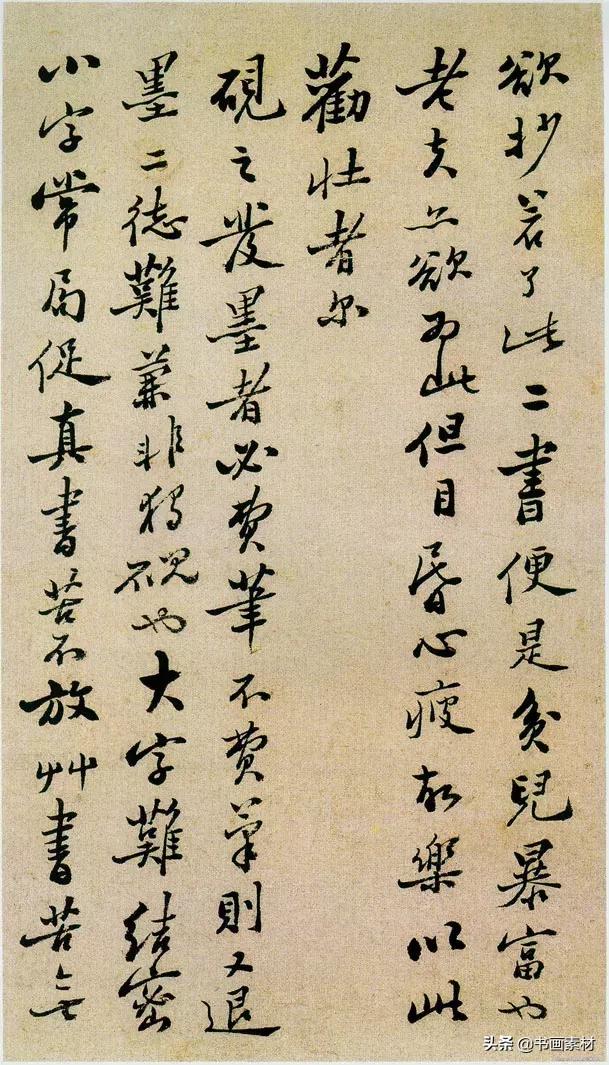 欲抄若了此二書便是貧兒暴富也
老夫亦欲為此但目昏心疲故樂以此
勸壯者尔
硯之發墨者必費筆不費筆則又退
墨二德難兼非獨硯也大字難結密
小字常局促真書苦不放艸書苦無
头条 @书画素材